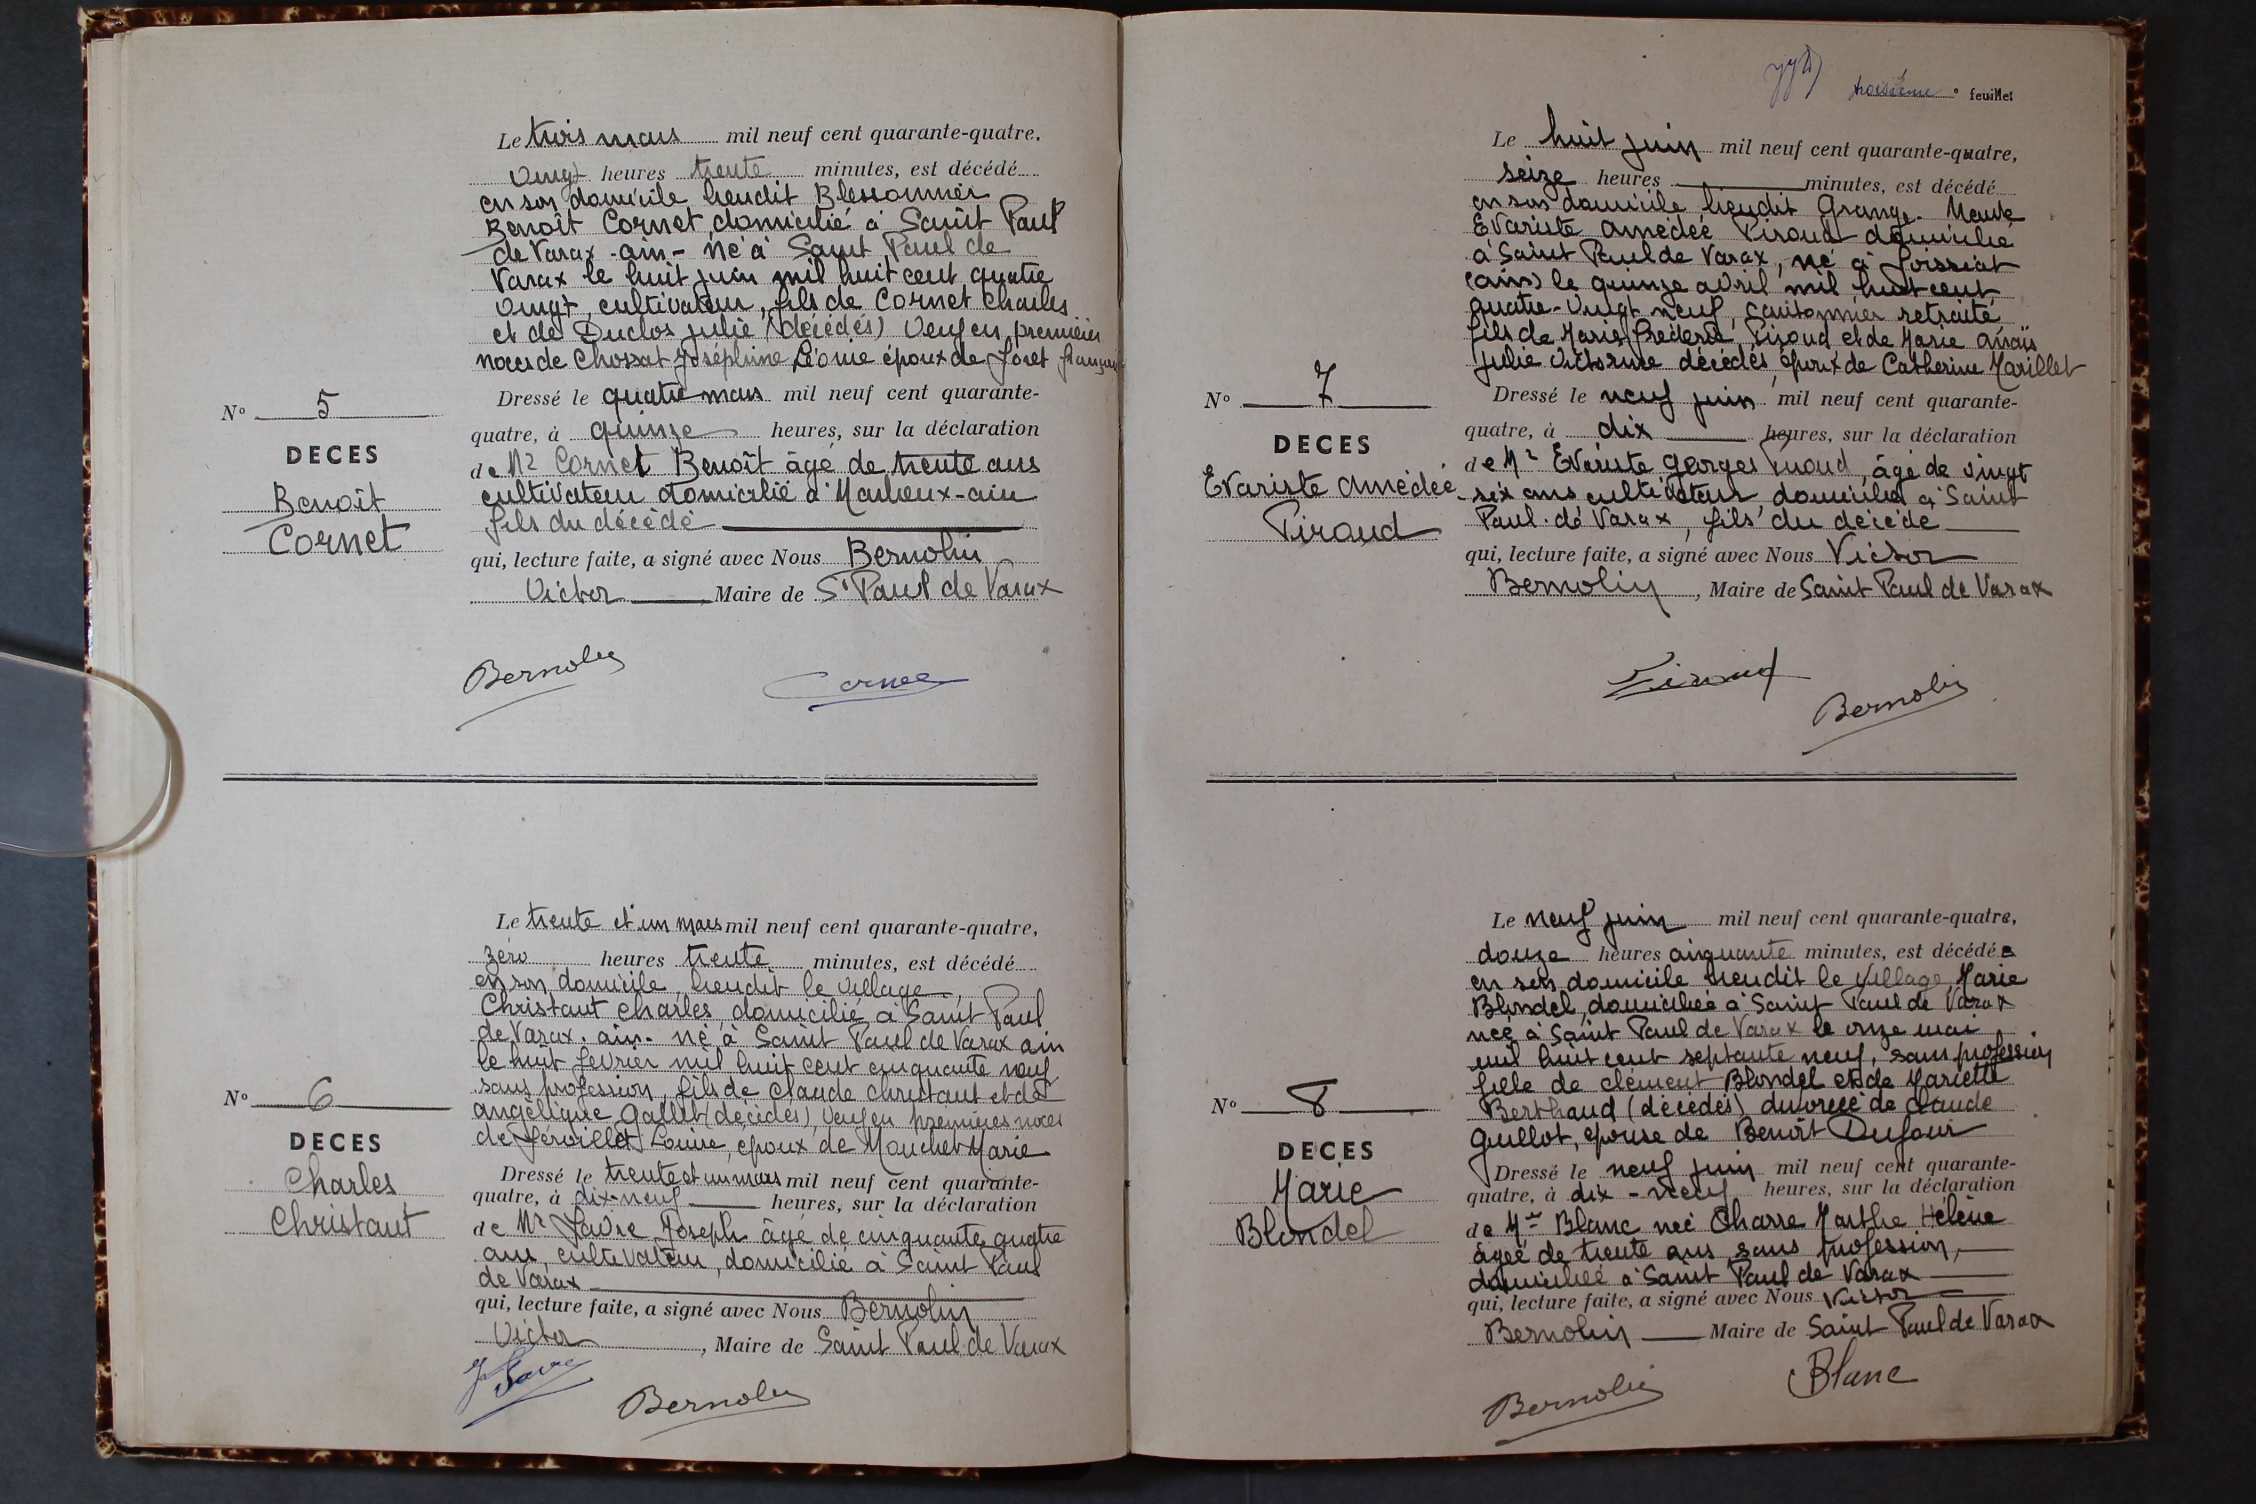 Le trois mars mil neuf cent quarante-quatre,
vingt heures trente minutes, est décédé
en son domicile lieudit Blessonnier
Benoît Cornet, domicilié à Saint Paul
de Varax - ain - né à Saint Paul de
Varax le huit juin mil huit cent quatre
vingt, cultivateur, fils de Cornet Charles
et de Duclos Julie (décédés) Veuf en premières
noces de Chossat Joséphine Léonie époux de Joret
N° 5
DECES
Benoît
Cornet
Dressé le quatre mars mil neuf cent quarante-
quatre, à quinze heures, sur la déclaration
de Mr Cornet Benoît âgé de trente ans
cultivateur domicilié à Marlieux - ain
fils du décédé
qui, lecture faite, a signé avec Nous Bernolin
Victor Maire de St Paul de Varax
Bernolin
Cornet
Le trente et un mars mil neuf cent quarante-quatre,
zéro heures trente minutes, est décédé
en son domicile, lieudit le village,
Christaut Charles, domicilié à Saint Paul
de Varax. ain. né à Saint Paul de Varax ain
le huit février mil huit cent cinquante neuf
sans profession, fils de Claude Christaut et de
angélique Gallet (décédés), veuf en premières noces
de Louise, époux de Mouchet Marie
N° 6
DECES
Charles
Christaut
Dressé le trente et un mars mil neuf cent quarante-
quatre, à dix-neuf heures, sur la déclaration
de Mr Favre Joseph âgé de cinquante quatre
ans, cultivateur, domicilié à Saint Paul
de Varax
qui, lecture faite, a signé avec Nous Bernolin
Victor, Maire de Saint Paul de Varax
J Favre
Bernolin
troisième ° feuillet
Le huit juin mil neuf cent quarante-quatre,
seize heures minutes, est décédé
en son domicile lieudit Grange - Neuve
Evariste amédée Piroud domicilié
à Saint Paul de Varax, né à Foissiat
(ain) le quinze avril mil huit cent
quatre-vingt neuf, cantonnier retraité
fils de Marie Frédéric Piroud et de Marie anaïs
Julie Victorine décédés, époux de Catherine Marillet
N° 7
DECES
Evariste amédée
Piroud
Dressé le neuf juin mil neuf cent quarante-
quatre, à dix heures, sur la déclaration
de Mr Evariste georges Piroud, âgé de vingt
six ans cultivateur domicilié à Saint
Paul de Varax, fils du décédé
qui, lecture faite, a signé avec Nous Victor
Bernolin, Maire de Saint Paul de Varax
Piroud
Bernolin
Le neuf juin mil neuf cent quarante-quatre,
douze heures cinquante minutes, est décédée
en son domicile lieudit le Village, Marie
Blondel, domiciliée à Saint Paul de Varax
née à Saint Paul de Varax le onze mai
mil huit cent septante neuf, sans profession
fille de clément Blondel et de Mariette
Berthaud (décédés) divorcée de claude
guillot, épouse de Benoît Dufour
N° 8
DECES
Marie
Blondel
Dressé le neuf juin mil neuf cent quarante-
quatre, à dix-neuf heures, sur la déclaration
de Mme Blanc née Charre Marthe Hélène
âgée de trente ans, sans profession,
domiciliée à Saint Paul de Varax
qui, lecture faite, a signé avec Nous Victor
Bernolin Maire de Saint Paul de Varax
Blanc
Bernolin